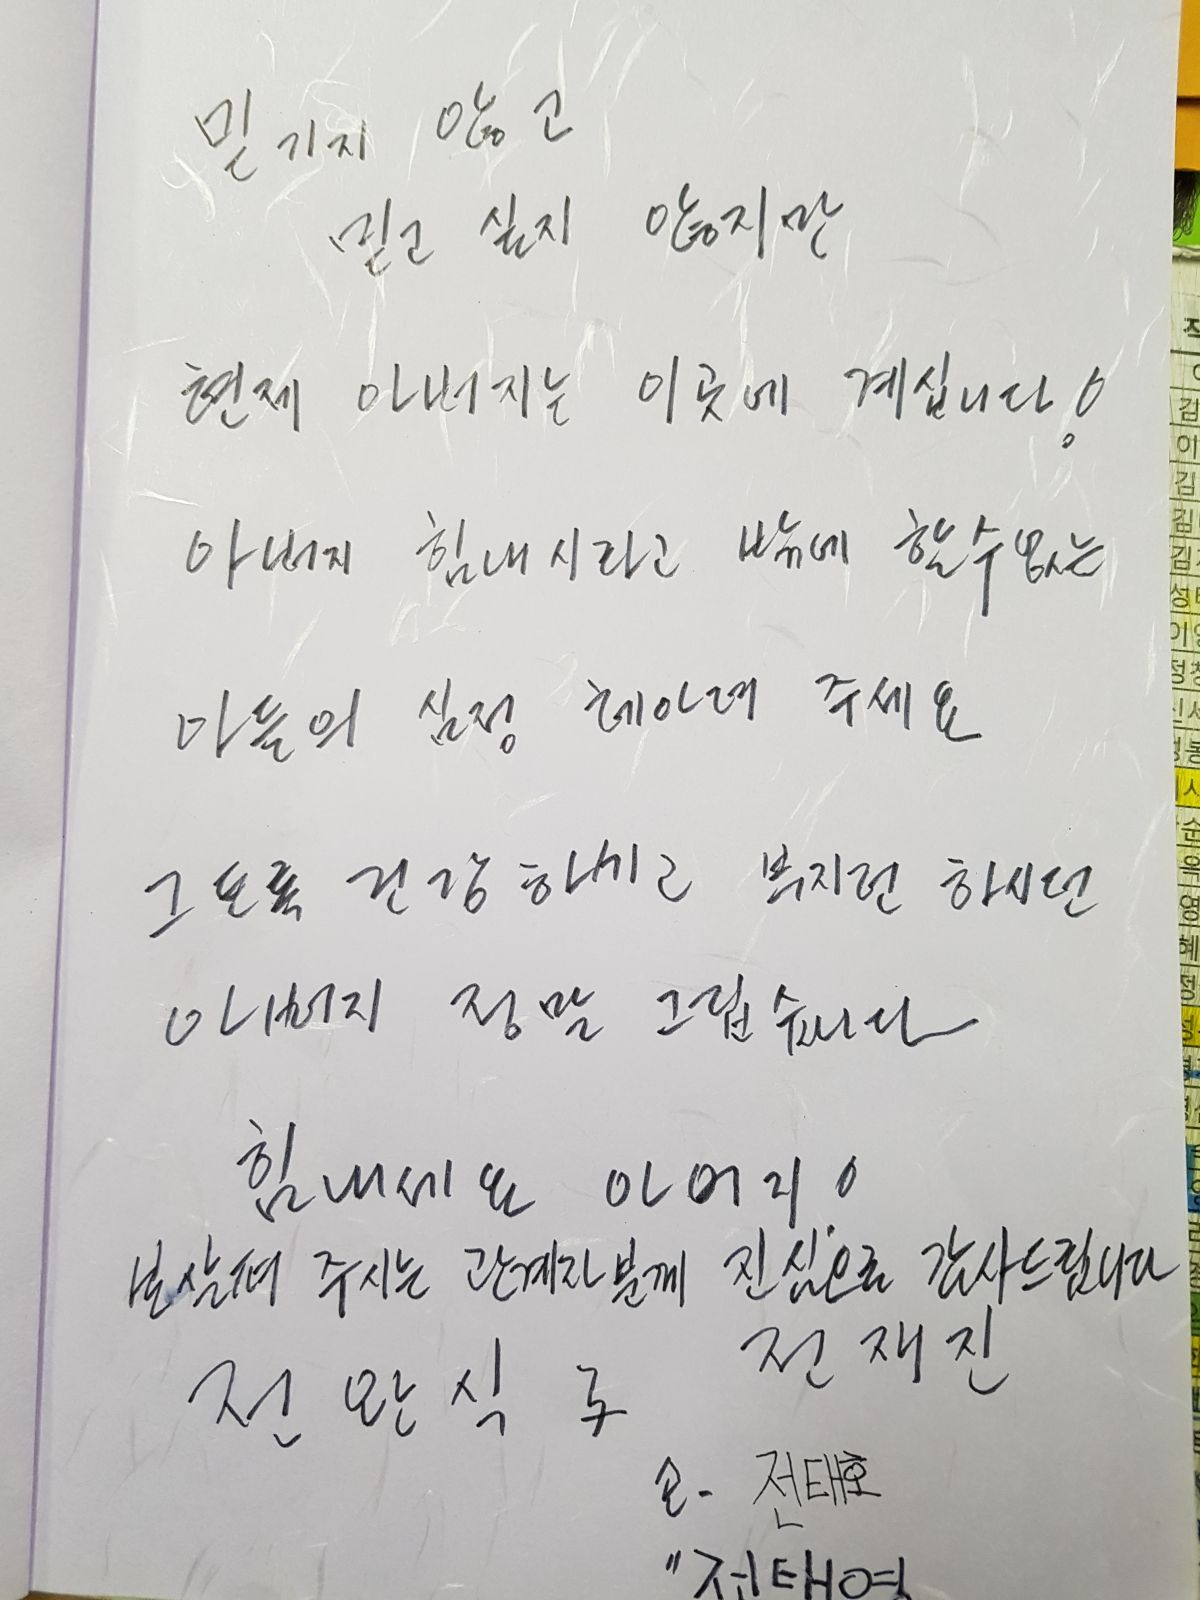 믿기지 않고
믿고 싶지 않지만
현재 아버지는 이곳에 계십니다!
아버지 힘내시라고 밖에 할수 없는
마음의 심정 헤아려 주세요
그토록 건강하시고 부지런 하시던
아버지 정말 그립습니다
힘내세요 아버지!
보살펴 주시는 관계자분께 진심으로 감사드립니다
전완식 子 전재진
손. 전태호
" 전태영